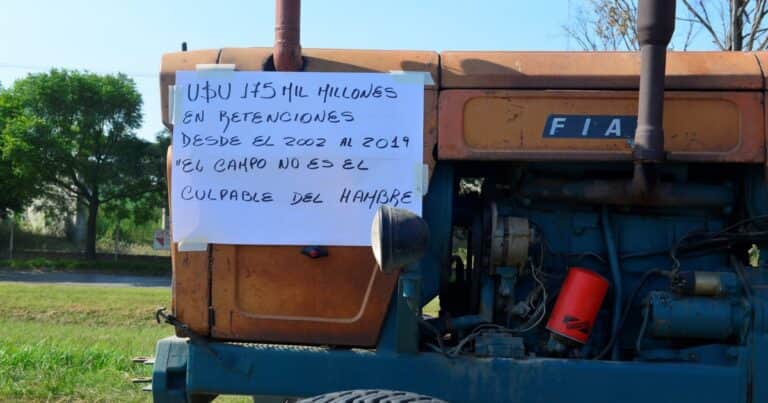 U$U 175 MIL MILLONES
EN RETENCIONES
DESDE EL 2002 AL 2019
"EL CAMPO NO ES EL
CULPABLE DEL HAMBRE
FIA